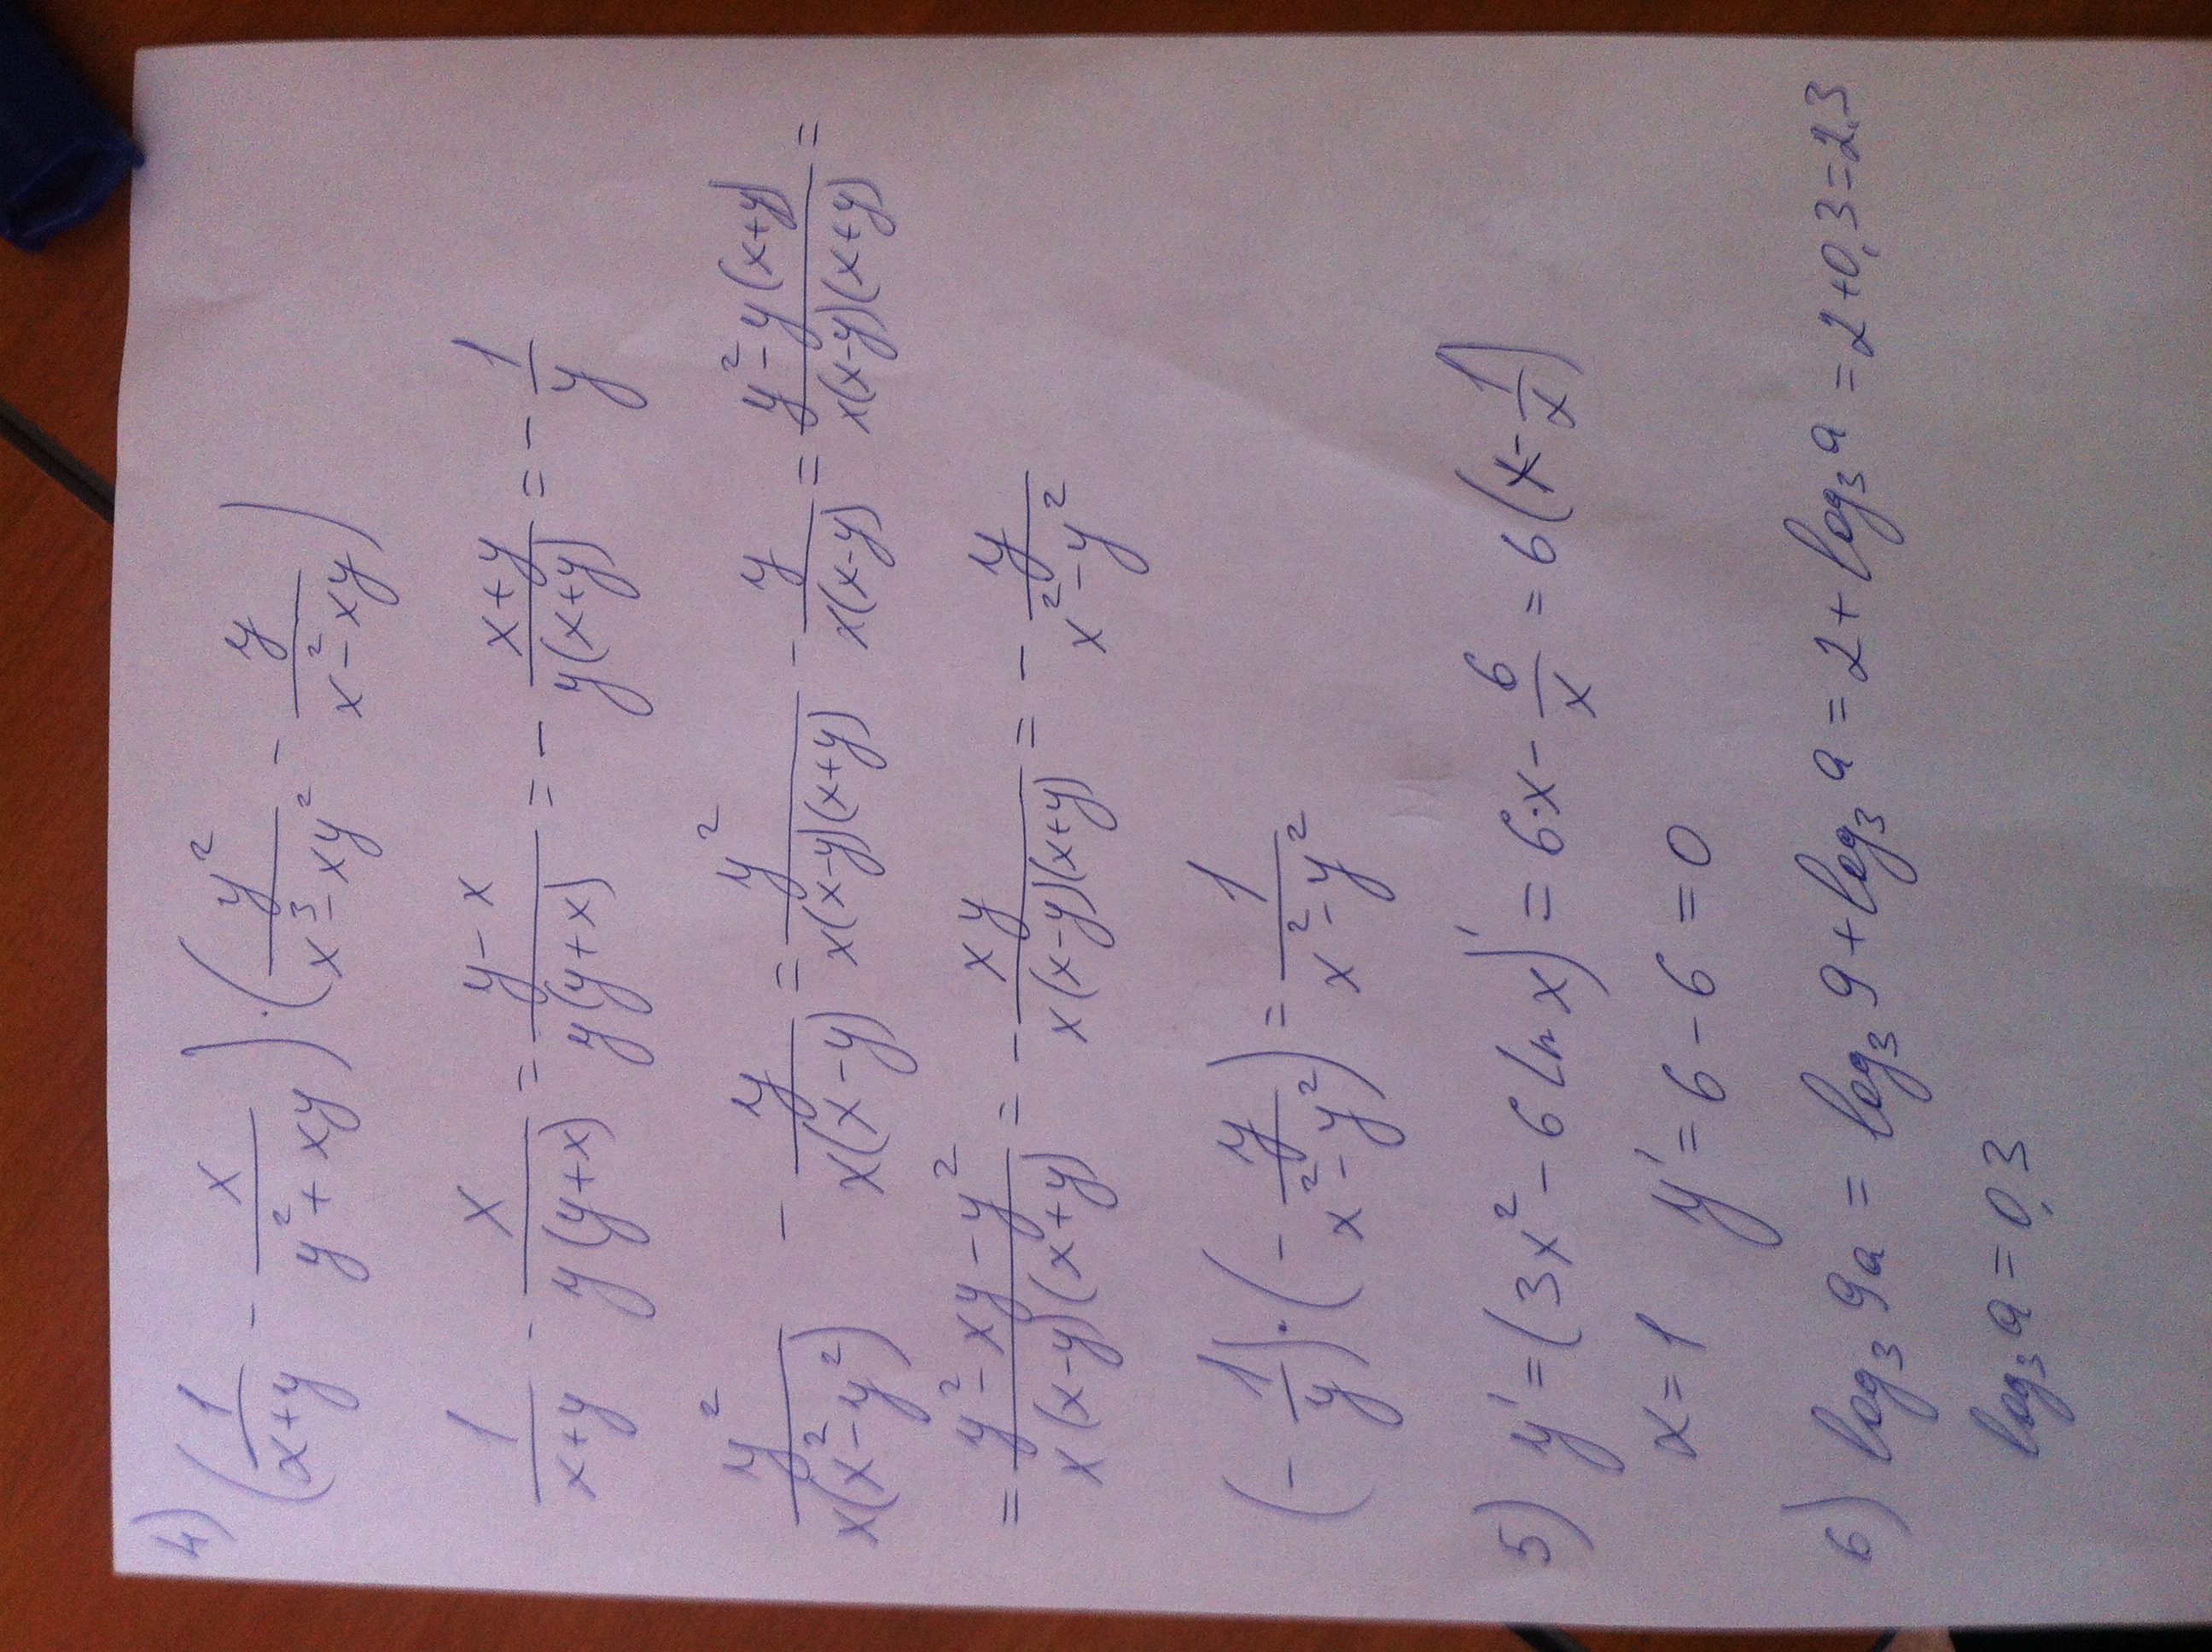 4) (1/(x+y) - x/(y²+xy)) · (y²/(x³-xy²) - y/(x²-xy))
1/(x+y) - x/(y(y+x)) = (y-x)/(y(y+x)) = - (x+y)/(y(x+y)) = - 1/y
y²/(x(x²-y²)) - y/(x(x-y)) = y²/(x(x-y)(x+y)) - y/(x(x-y)) = (y²-y(x+y))/(x(x-y)(x+y)) =
= (y²-xy-y²)/(x(x-y)(x+y)) = - xy/(x(x-y)(x+y)) = - y/(x²-y²)
(- 1/y) · (- y/(x²-y²)) = 1/(x²-y²)
5) y' = (3x² - 6 ln x)' = 6·x - 6/x = 6(x - 1/x)
x = 1 y' = 6 - 6 = 0
6) log₃ 9a = log₃ 9 + log₃ a = 2 + log₃ a = 2+0,3=2,3
log₃ a = 0,3